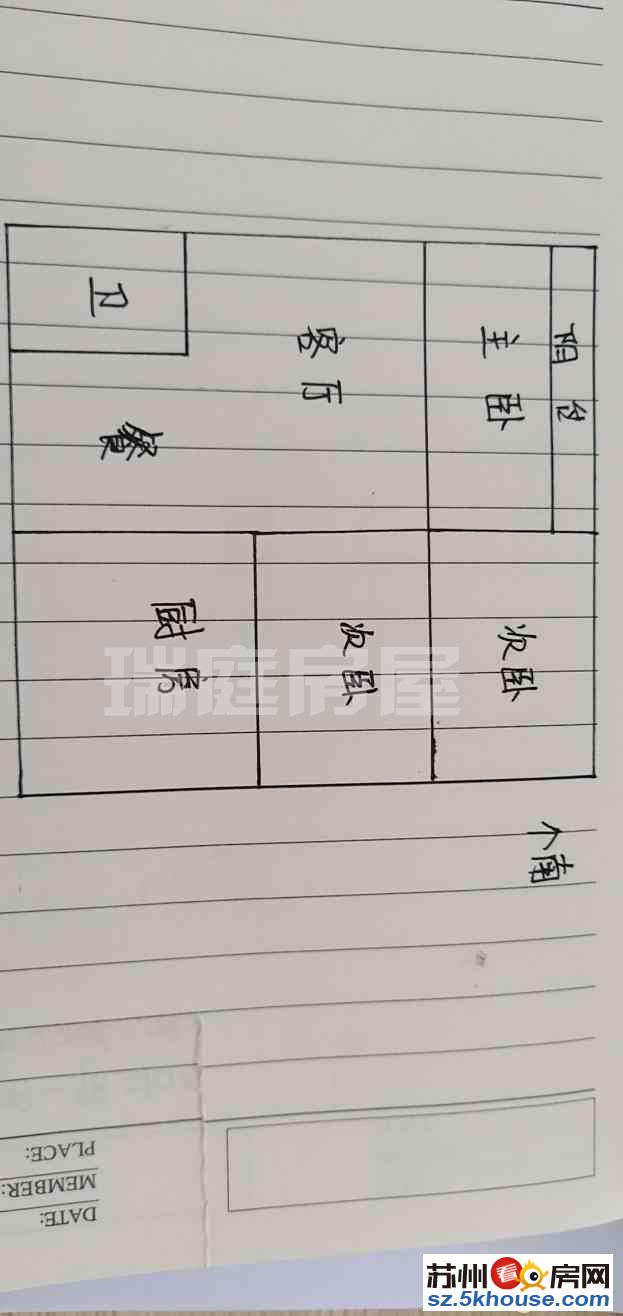 卫
客厅
主卧
阳台
餐
厨房
次卧
次卧
↑南
瑞庭房屋
PLACE:
MEMBER:
DATE:
苏州看房网
sz.5khouse.com